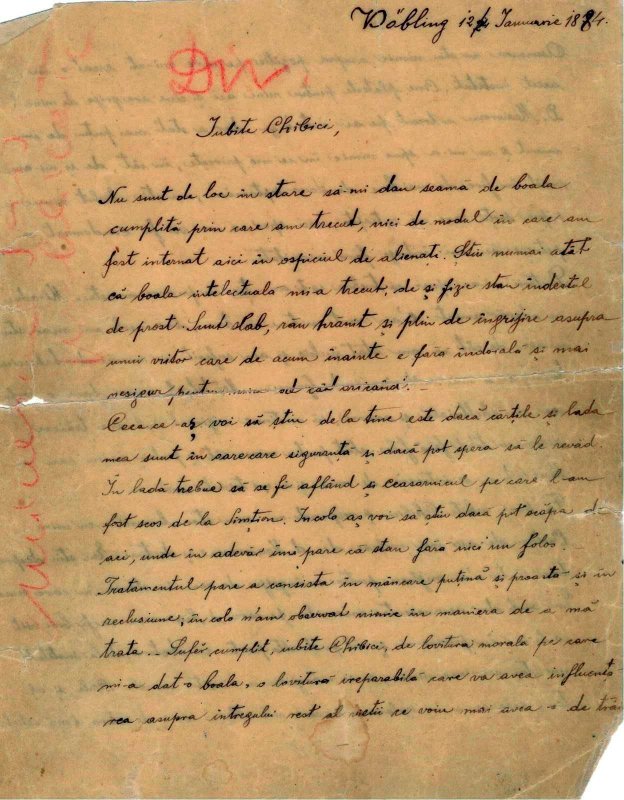 Döbling 12/24 Ianuarie 1884.
Div.
Iubite Chibici,
Nu sunt de loc în stare să-mi dau seamă de boala
cumplită prin care am trecut, nici de modul în care am
fost internat aici în ospiciul de alienați. Știu numai atât
că boala intelectuala mi-a trecut, de și fizic stau îndestul
de prost. Sunt slab, rău hrănit și plin de îngrijire asupra
unui viitor care de acum înainte e fără îndoială și mai
nesigur pentru mine
Ceea ce aș voi să știu de la tine este dacă cărțile și lada
mea sunt în carecare siguranță și dacă pot spera să le revăd.
În ladă trebue să se fi aflând și ceasornicul pe care l-am
fost scos de la Simțion. Încolo aș voi să știu daca pot scăpa d
aci, unde în adevăr îmi pare că stau fără nici un folos.
Tratamentul pare a consista în mâncare puțină și proastă și în
reclusiune; în colo n'am observat nimic în maniera de a mă
trata. – Sufăr cumplit, iubite Chibici, de lovitura morala pe care
mi-a dat-o boala, o lovitură ireparabilă care va avea influență
rea asupra intregului rest al vieții ce voiu mai avea-o de trăi